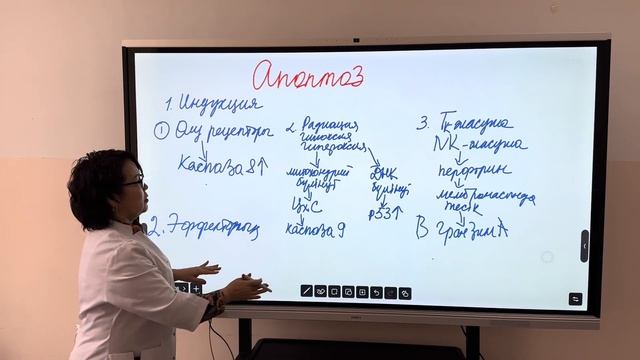 Апоптоз
1. Индукция
① Өлу рецепторы
каспаза 8↑
2. Радиация
гипоксия
гипероксия
митохондрий
бүлінуі
ЦхС
каспаза 9
ДНК
бүлінуі
р53↑
3. Тк-жасуша
NK-жасуша
перфорин
мембранасында
тесік
В гранзим А
2. Эффекторлы